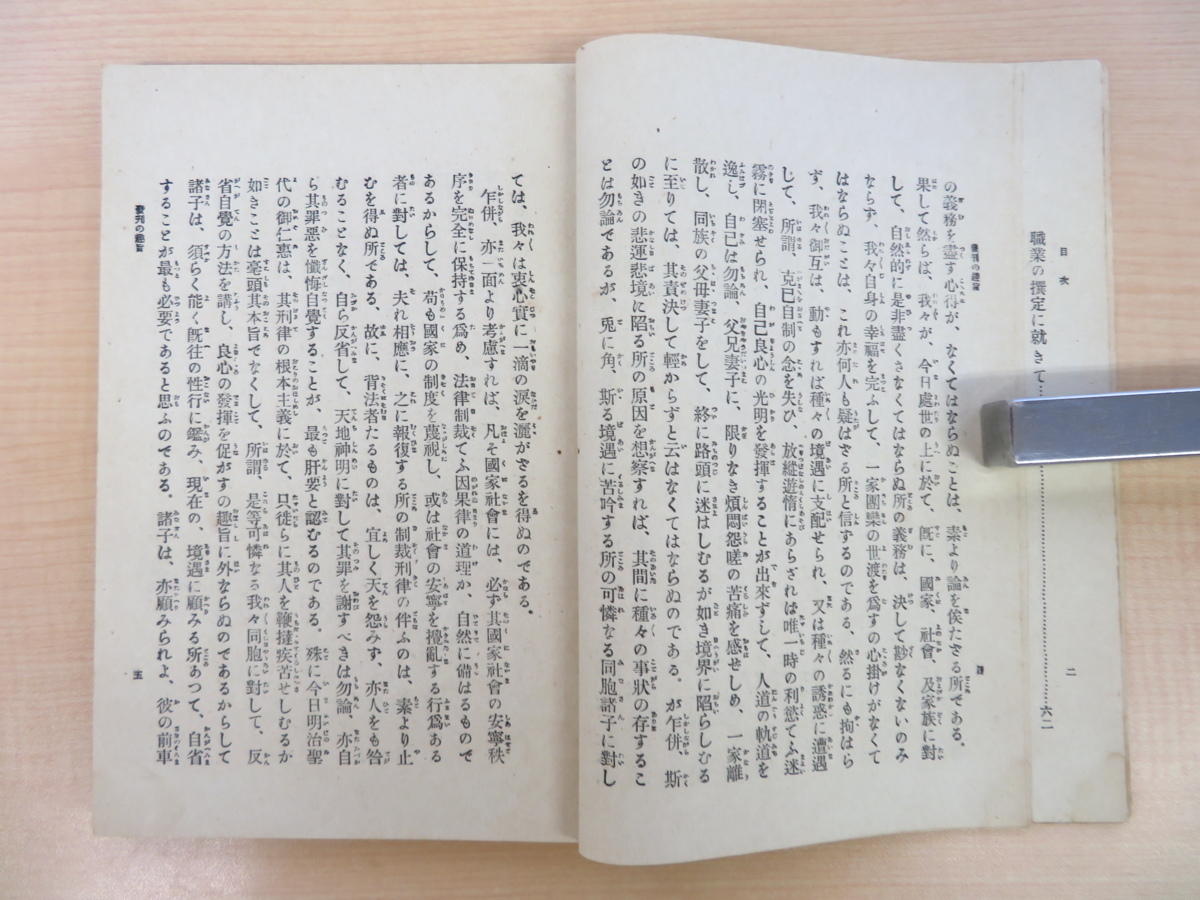 目次
二
職業の撰定に就きて……………………六二
發刊の趣旨
四
の義務を盡す心得が、なくてはならぬことは、素より論を俟たざる所である。
果して然らば、我々が、今日處世の上に於て、既に、國家、社會、及家族に對
して、自然的に是非盡くさなくてはならぬ所の義務は、決して尠なくないのみ
ならず、我々自身の幸福を完ふして、一家團欒の世渡を爲すの心掛けがなくて
はならぬことは、これ亦何人も疑はざる所と信するのである、然るにも拘はら
ず、我々御互は、動もすれば種々の境遇に支配せられ、又は種々の誘惑に遭遇
して、所謂、克己自制の念を失ひ、放縱遊惰にあらざれば唯一時の利慾てふ迷
霧に閉塞せられ、自己良心の光明を發揮することが出來ずして、人道の軌道を
逸し、自己は勿論、父兄妻子に、限りなき煩悶怨嗟の苦痛を感せしめ、一家離
散し、同族の父母妻子をして、終に路頭に迷はしむるが如き境界に陷らしむる
に至りては、其責決して輕からずと云はなくてはならぬのである。が乍併、斯
の如きの悲運悲境に陷る所の原因を想察すれば、其間に種々の事狀の存するこ
とは勿論であるが、兎に角、斯る境遇に苦吟する所の可憐なる同胞諸子に對し
ては、我々は衷心實に一滴の涙を灑がさるを得ぬのである。
乍併、亦一面より考慮すれば、凡そ國家社會には、必ず其國家社會の安寧秩
序を完全に保持する爲め、法律制裁てふ因果律の道理か、自然に備はるもので
あるからして、苟も國家の制度を蔑視し、或は社會の安寧を攪亂する行爲ある
者に對しては、夫れ相應に、之に報復する所の制裁刑律の伴ふのは、素より止
むを得ぬ所である、故に、背法者たるものは、宜しく天を怨みず、亦人をも咎
むることなく、自ら反省して、天地神明に對して其罪を謝すべきは勿論、亦自
ら其罪惡を懺悔自覺することが、最も肝要と認むるのである。殊に今日明治聖
代の御仁惠は、其刑律の根本主義に於て、只徒らに其人を鞭撻疾苦せしむるか
如きことは毫頭其本旨でなくして、所謂、是等可憐なる我々同胞に對して、反
省自覺の方法を講し、良心の發揮を促がすの趣旨に外ならぬのであるからして
諸子は、須らく能く既往の性行に鑑み、現在の、境遇に顧みる所あつて、自省
することが最も必要であると思ふのである。諸子は、亦顧みられよ、彼の前車
發刊の趣旨
五